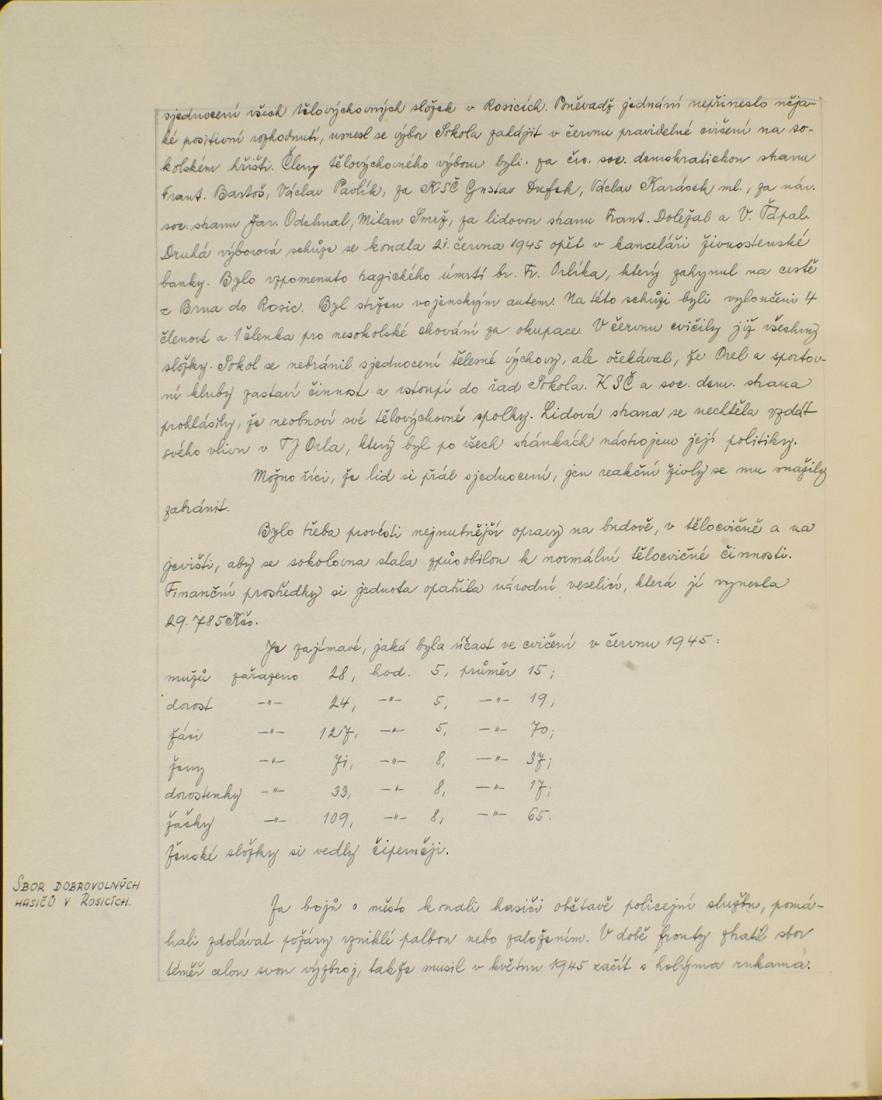 sjednocení všech tělovýchovných složek v Rosicích. Poněvadž jednání nepřineslo něja-
ké positivní rozhodnutí, usnesl se výbor Sokola zahájit v červnu pravidelné cvičení na so-
kolském hřišti. Členy tělovýchovného výboru byli: za čs. soc. demokratickou stranu
Frant. Bartoš, Václav Pavlík, za KSČ Gustav Dufek, Václav Karásek ml., za nár.
soc. stranu Jar. Odehnal, Milan Smrž, za lidovou stranu Frant. Doležal a V. Ťápal.
Druhá výborová schůze se konala 21. června 1945 opět v kanceláři živnostenské
banky. Bylo vzpomenuto tragického úmrtí br. Fr. Orlíka, který zahynul na cestě
z Brna do Rosic. Byl stržen vojenským autem. Na této schůzi byli vyloučeni 4
členové a 1 členka pro nesokolské chování za okupace. V červnu cvičily již všechny
složky. Sokol se nebránil sjednocení tělesné výchovy, ale očekával, že Orel a sportov-
ní kluby zastaví činnost a vstoupí do řad Sokola. KSČ a soc. dem. strana
prohlásily, že neobnoví své tělovýchovné spolky. Lidová strana se nechtěla vzdát
svého vlivu v TJ Orla, který byl po všech stránkách nástrojem její politiky.
Možno říci, že lid si přál sjednocení, jen reakční živly se mu snažily
zabránit.
Bylo třeba provésti nejnutnější opravy na budově, v tělocvičně a na
jevišti, aby se sokolovna stala způsobilou k normální tělocvičné činnosti.
Finanční prostředky si jednota opatřila národní veselicí, která jí vynesla
29.785 Kčs.
Je zajímavé, jaká byla účast ve cvičení v červnu 1945:
mužů zařazeno 28, hod. 5, průměr 15;
dorost -"- 24, -"- 5, -"- 19;
žáci -"- 127, -"- 5, -"- 70;
ženy -"- 71, -"- 8, -"- 37;
dorostenky -"- 33, -"- 8, -"- 17;
žačky -"- 109, -"- 8, -"- 65.
Ženské složky si vedly čiperněji.
SBOR DOBROVOLNÝCH
HASIČŮ V ROSICÍCH.
Za bojů o město konali hasiči obětavě policejní službu, pomá-
hali zdolávat požáry vzniklé palbou nebo založením. V době fronty ztratil sbor
téměř celou svou výzbroj, takže musil v květnu 1945 začít s holýma rukama.